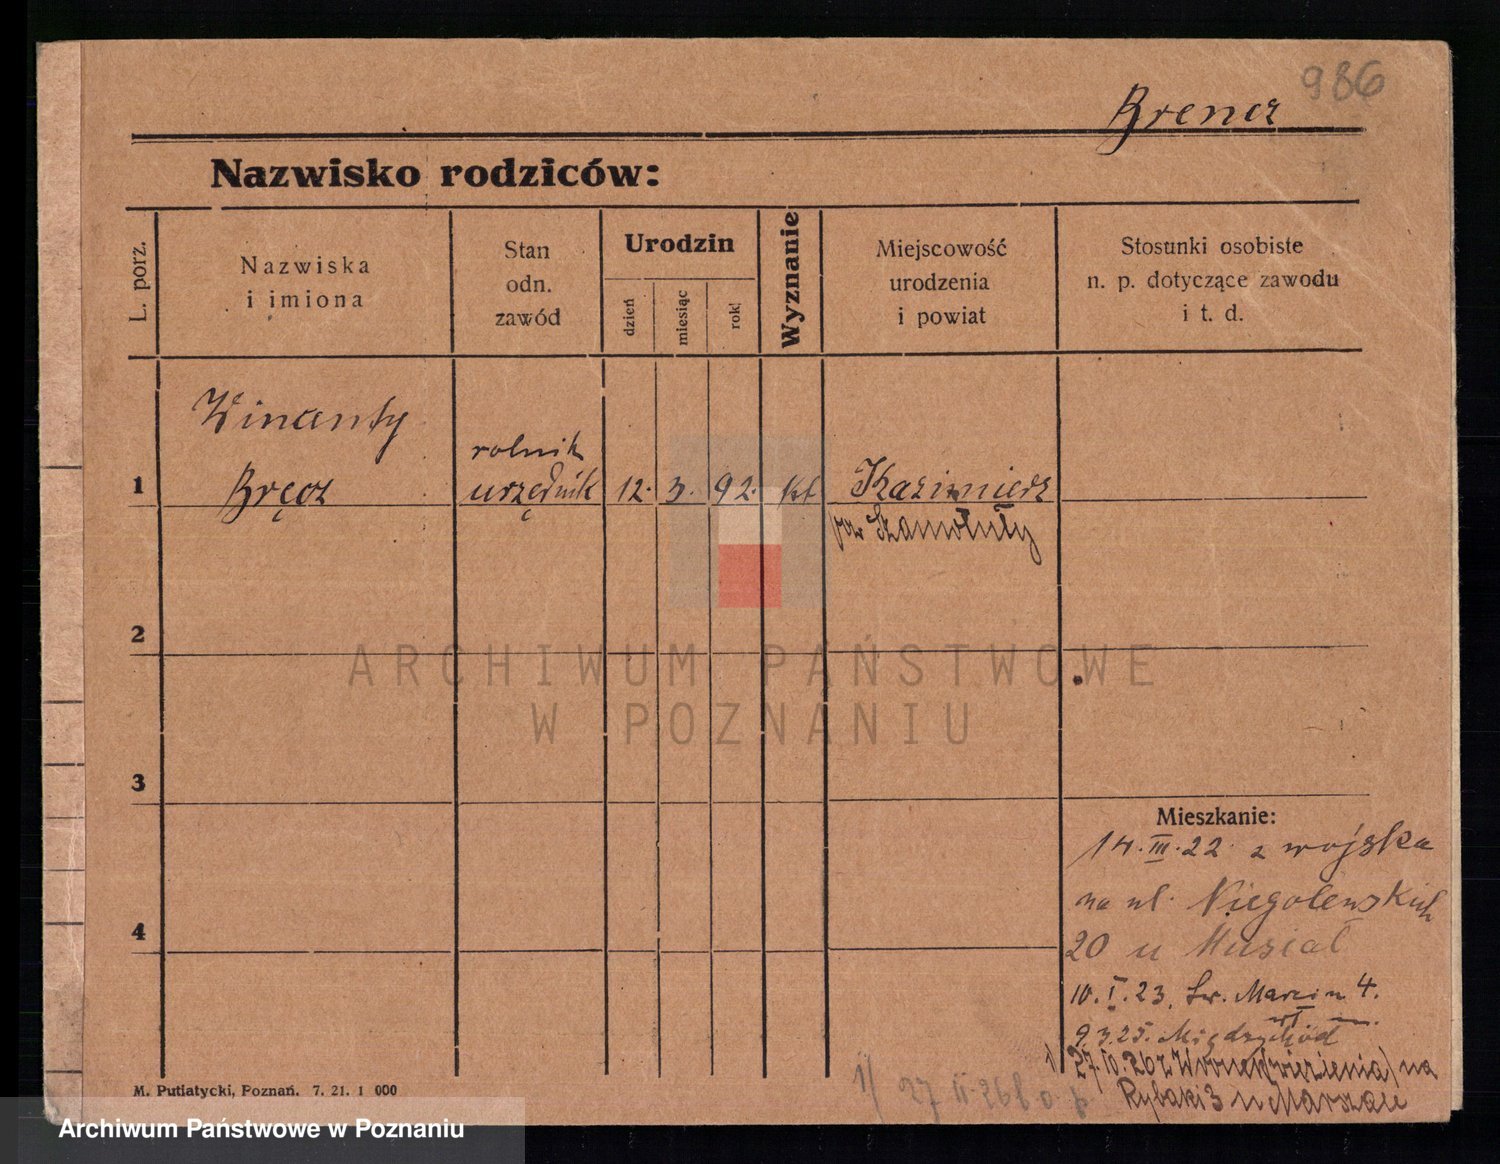 986
Brencz
Nazwisko rodziców:
L. porz.
Nazwiska
i imiona
Stan
odn.
zawód
Urodzin
dzień
miesiąc
rok
Wyznanie
Miejscowość
urodzenia
i powiat
Stosunki osobiste
n. p. dotyczące zawodu
i t. d.
Winanty
rolnik
1 Bręcz urzędnik 12. 3. 92. kt Kazimierz
pow Szamotuły
2
ARCHIWUM PAŃSTWOWE
W POZNANIU
3
Mieszkanie:
14. III. 22 z wojska
na ul. Niegolewskich
4
20 u Musiał
10. I. 23. Św. Marcin 4.
9.3.25. Międzychód
1) 27. 10. 26 z Wronek (więzienia) na
Rybaki 3 u Marszałe
1) 27 II
M. Putiatycki, Poznań. 7. 21. 1 000
Archiwum Państwowe w Poznaniu